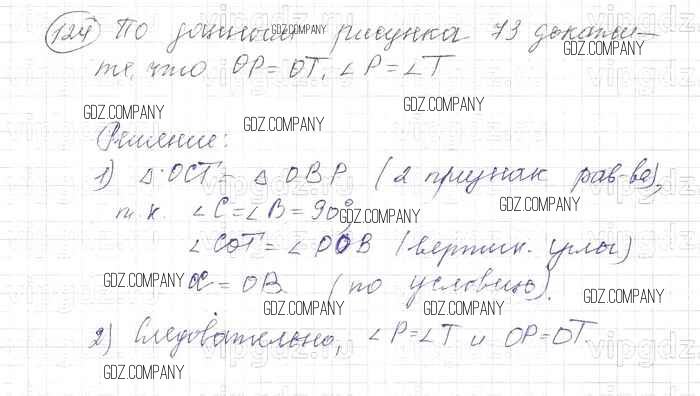 124 По данным рисунка 73 докажи-
те, что OP = OT, ∠P = ∠T
Решение:
1) △ OCT = △ OBP (2 признак рав-ва),
т.к. ∠C = ∠B = 90°,
∠COT = ∠POB (вертик. углы)
OC = OB (по условию).
2) Следовательно, ∠P = ∠T и OP = OT.
GDZ.COMPANY
GDZ.COMPANY
GDZ.COMPANY
GDZ.COMPANY
GDZ.COMPANY
GDZ.COMPANY
GDZ.COMPANY
GDZ.COMPANY
GDZ.COMPANY
GDZ.COMPANY
GDZ.COMPANY
GDZ.COMPANY
GDZ.COMPANY